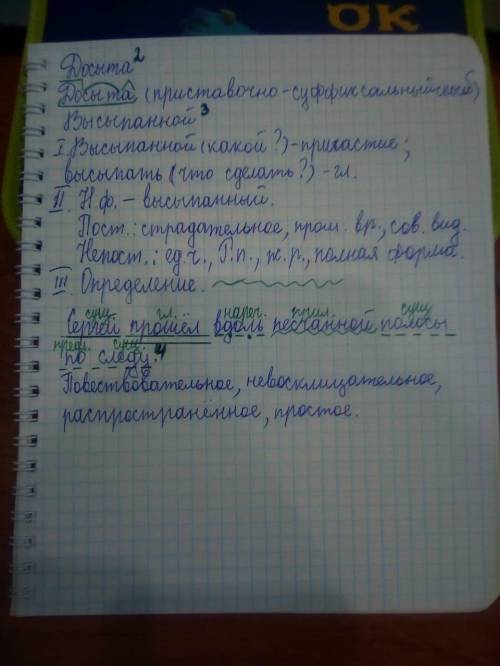 ОК
Досыта²
Досыта (приставочно-суффиксальный способ)
Высыпанной³
I. Высыпанной (какой?) - причастие;
высыпать (что сделать?) - гл.
II. Н.ф. – высыпанный.
Пост.: страдательное, прош. вр., сов. вид.
Непост.: ед.ч., Р.п., ж.р., полная форма.
III. Определение.
сущ. гл. нареч. прил. сущ.
Сергей прошёл вдоль песчанной полосы
предл. сущ.
по следу.⁴
Повествовательное, невосклицательное,
распространённое, простое.